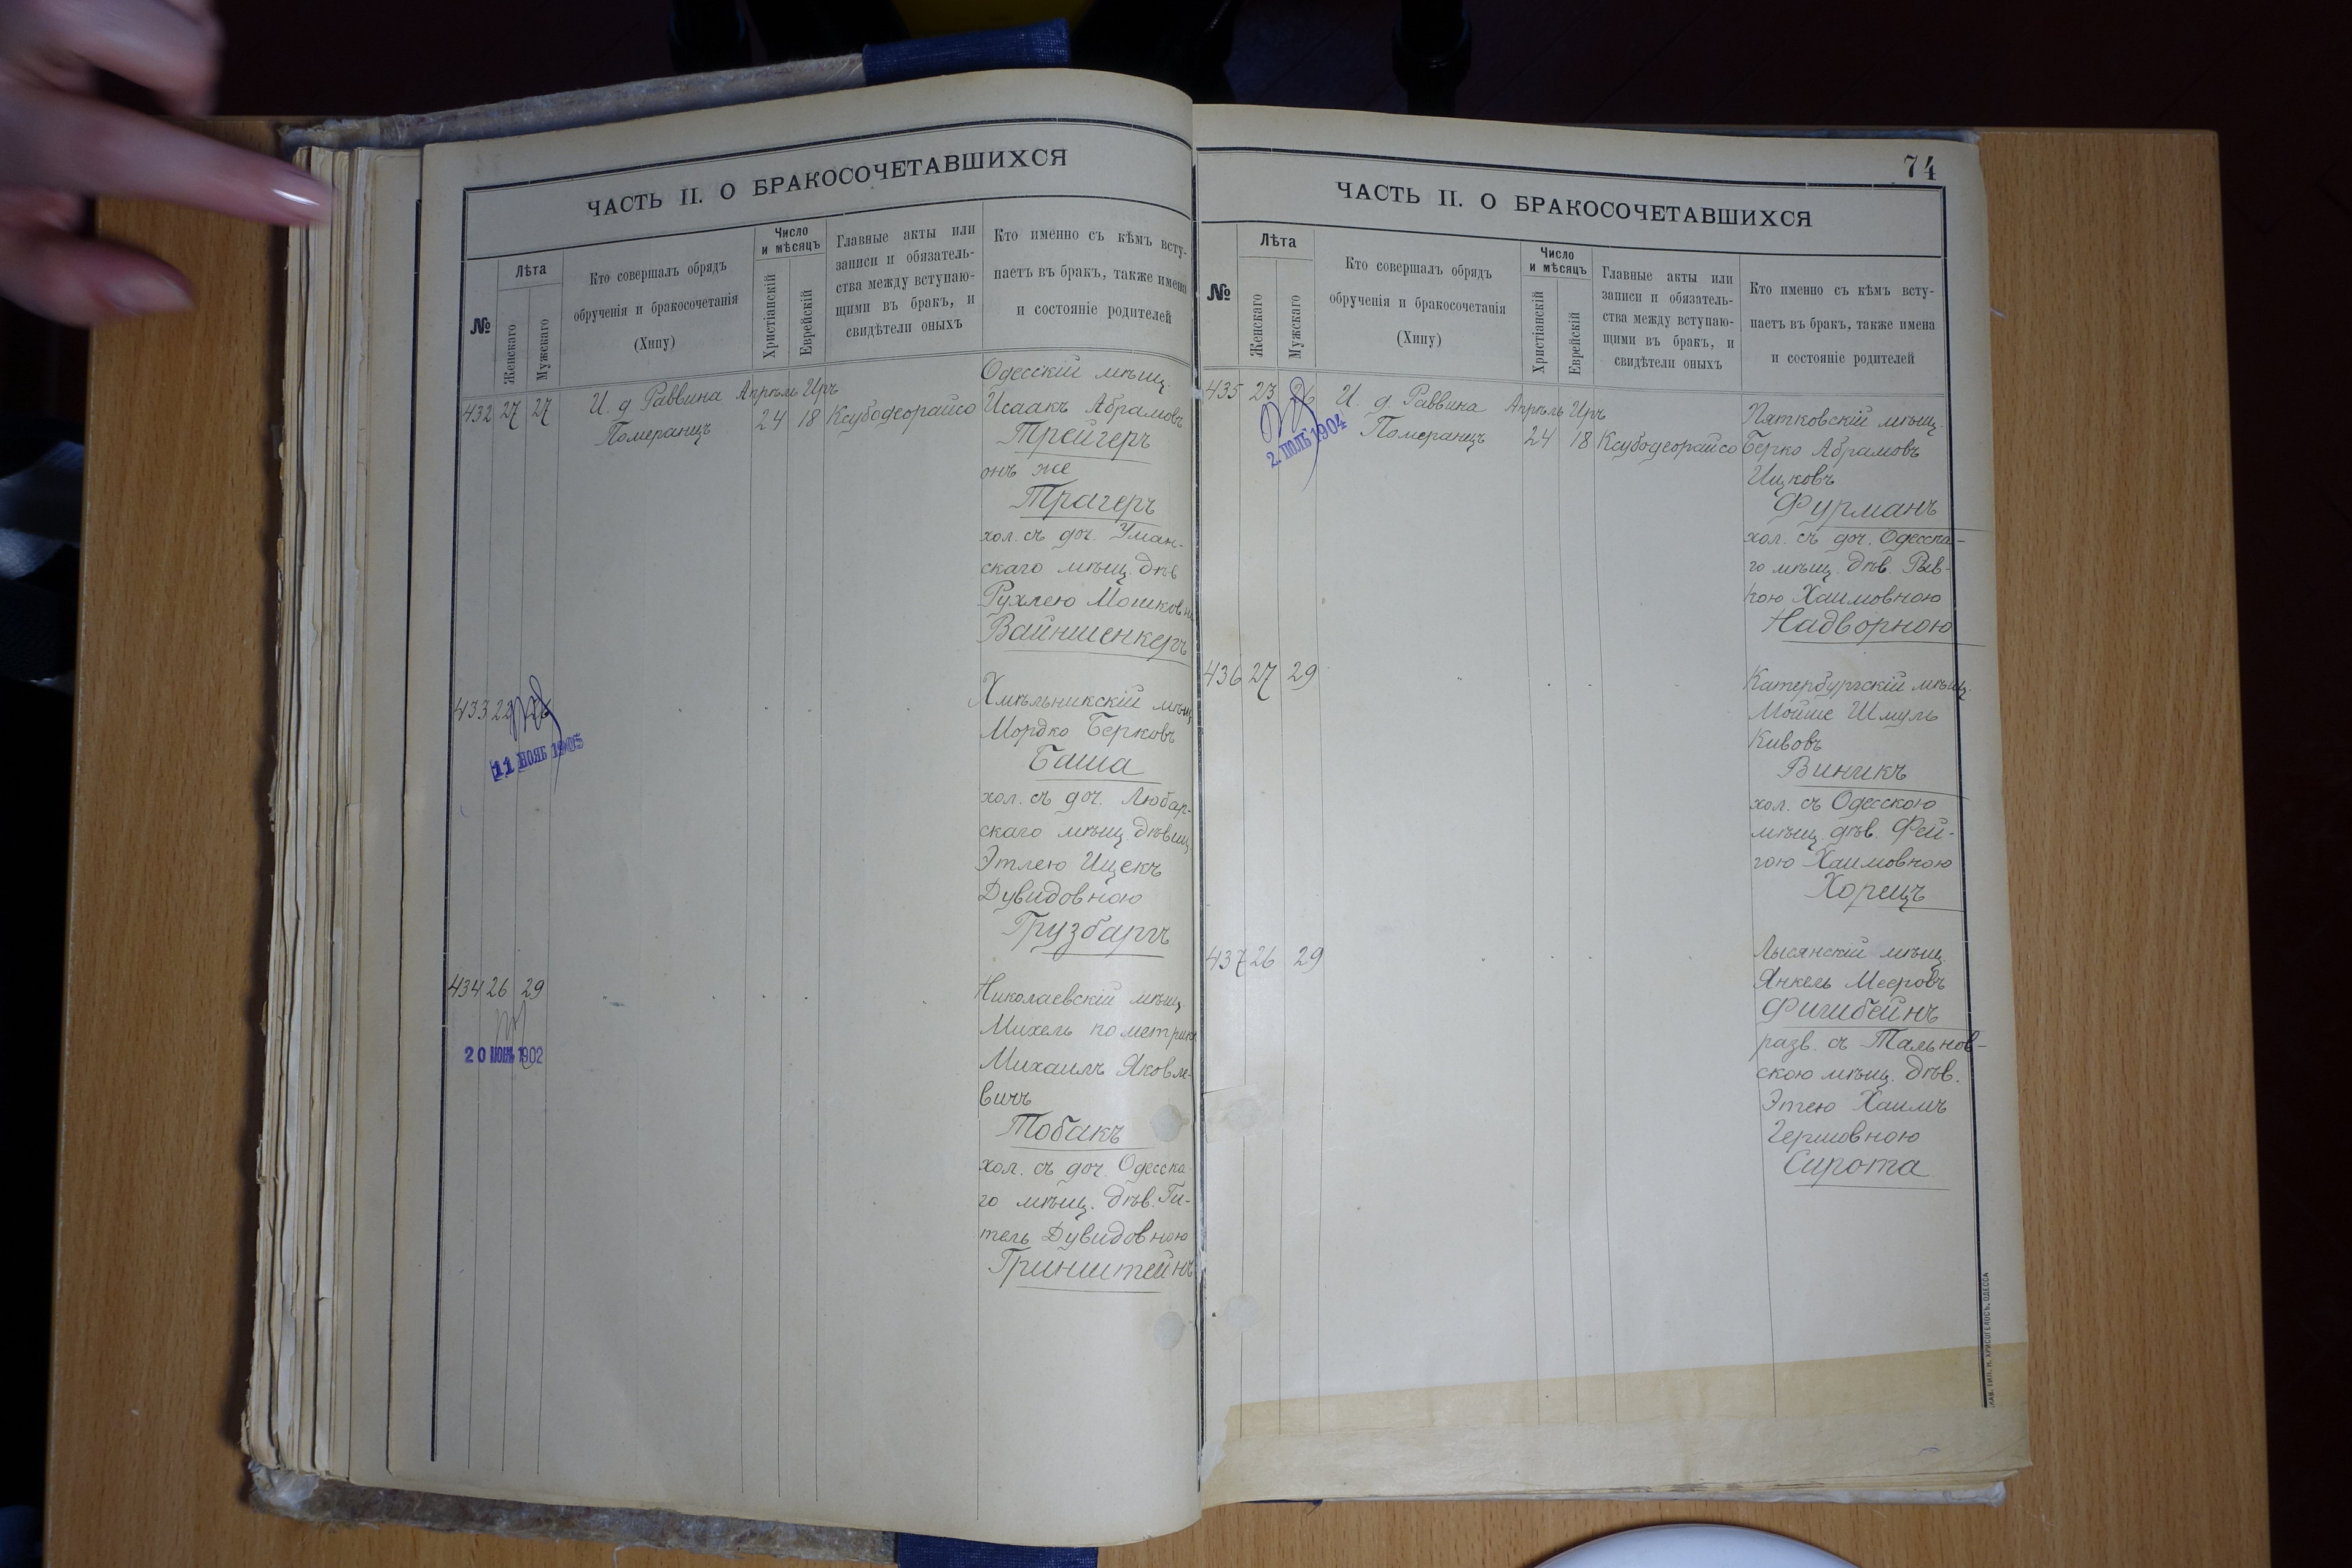 ЧАСТЬ II. О БРАКОСОЧЕТАВШИХСЯ
№
Лѣта
Женскаго
Мужскаго
Кто совершалъ обрядъ
обрученія и бракосочетанія
(Хипу)
Число
и мѣсяцъ
Христіанскій
Еврейскій
Главные акты или
записи и обязатель-
ства между вступаю-
щими въ бракъ, и
свидѣтели оныхъ
Кто именно съ кѣмъ всту-
паетъ въ бракъ, также имена
и состояніе родителей
432 27 27
И. д. Раввина
Померанцъ
Апрѣль Иръ
24 18
Ксубодеорайсо
Одесскій мѣщ.
Исаакъ Абрамовъ
Трейгеръ
онъ же
Трагеръ
хол. съ доч. Уман-
скаго мѣщ. дѣв
Рухлею Мошковн
Вайншенкеръ
433 22 26
11 НОЯБ 1905
Хмѣльникскій мѣщ
Мордко Берковъ
Баша
хол. съ доч. Любар-
скаго мѣщ. дѣвиц.
Этлею Ицекъ
Дувидовною
Грузбаргъ
434 26 29
20 ИЮНЬ 1902
Николаевскій мѣщ
Михель по метрикѣ
Михаилъ Яковле-
вичъ
Тобакъ
хол. съ доч. Одесска-
го мѣщ. дѣв. Ги-
тель Дувидовною
Гринштейнъ
74
ЧАСТЬ II. О БРАКОСОЧЕТАВШИХСЯ
№
Лѣта
Женскаго
Мужскаго
Кто совершалъ обрядъ
обрученія и бракосочетанія
(Хипу)
Число
и мѣсяцъ
Христіанскій
Еврейскій
Главные акты или
записи и обязатель-
ства между вступаю-
щими въ бракъ, и
свидѣтели оныхъ
Кто именно съ кѣмъ всту-
паетъ въ бракъ, также имена
и состояніе родителей
435 23 26
2. ИЮЛЬ 1904
И. д. Раввина
Померанцъ
Апрѣль Иръ
24 18
Ксубодеорайсо
Пятковскій мѣщ.
Берко Абрамовъ
Ицковъ
Фурманъ
хол. съ доч. Одесска-
го мѣщ. дѣв. Рыв-
кою Хаимовною
Надворною
436 27 29
Катербургскій мѣщ.
Мойше Шмуль
Кивовъ
Виникъ
хол. съ Одесскою
мѣщ. дѣв. Фей-
гою Хаимовною
Хорецъ
437 26 29
Лысянскій мѣщ.
Янкель Мееровъ
Фишбейнъ
разв. съ Тальнов-
скою мѣщ. дѣв.
Этею Хаимъ
Гершовною
Сирота